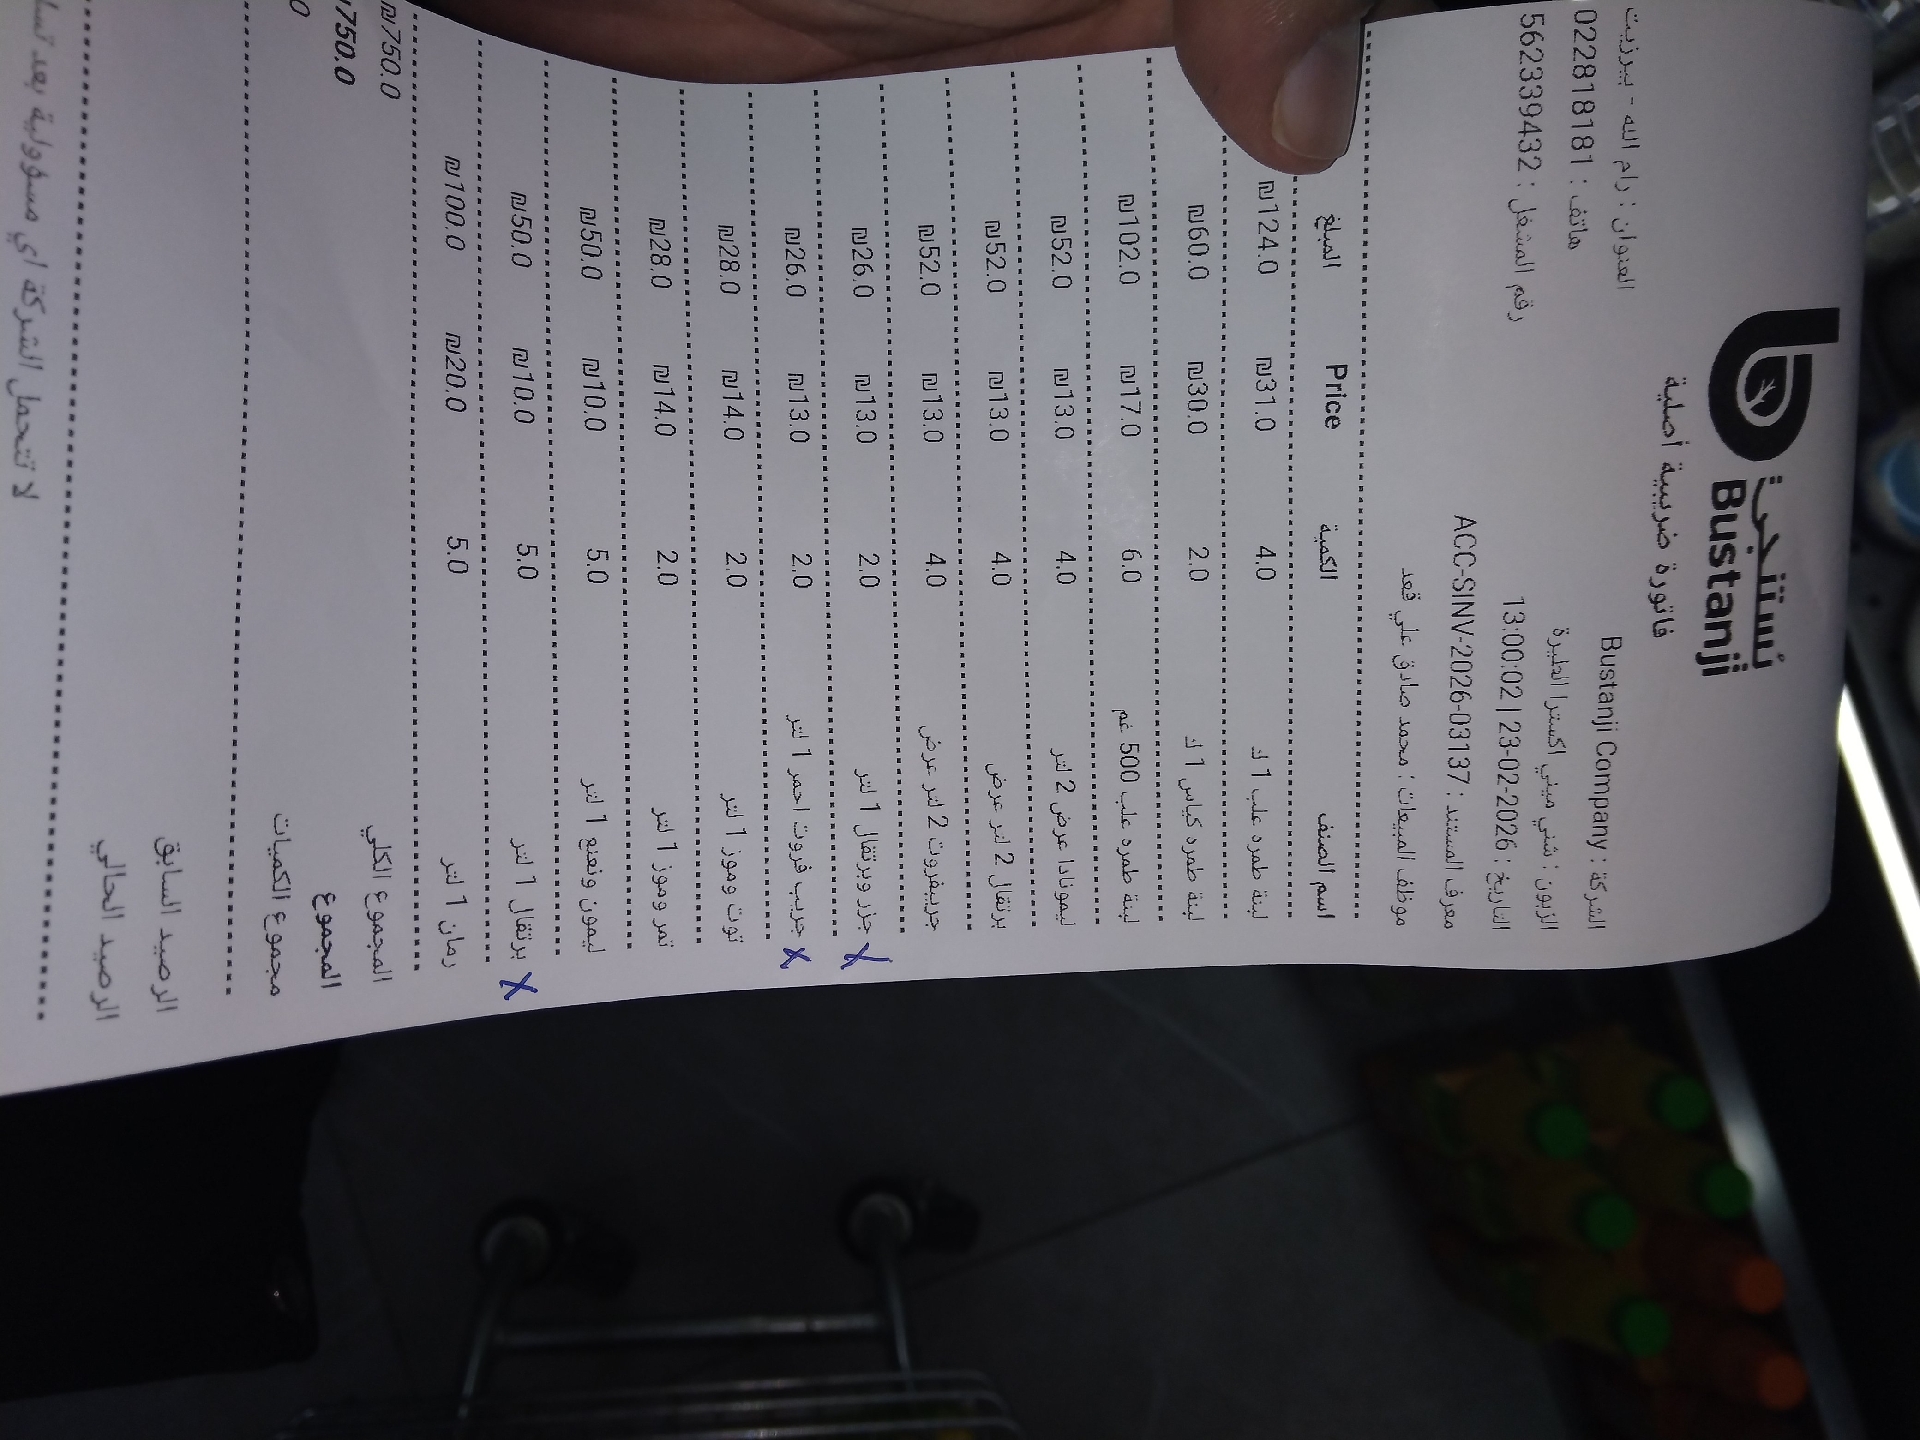 بُستنجي
Bustanji
فاتورة ضريبية أصلية
الشركة : Bustanji Company
العنوان : رام الله - بيرزيت
الزبون : شني ميني اكسترا الطيرة
هاتف : 022818181
التاريخ : 23-02-2026 | 13:00:02
رقم المشتغل : 562339432
معرف المستند : ACC-SINV-2026-03137
موظف المبيعات : محمد صادق علي قعد
اسم الصنف الكمية Price المبلغ
لبنة طمره علب 1 ك 4.0 ₪31.0 ₪124.0
لبنة طمره كياس 1 ك 2.0 ₪30.0 ₪60.0
لبنة طمره علب 500 غم 6.0 ₪17.0 ₪102.0
ليمونادا عرض 2 لتر 4.0 ₪13.0 ₪52.0
برتقال 2 لتر عرض 4.0 ₪13.0 ₪52.0
جريبفروت 2 لتر عرض 4.0 ₪13.0 ₪52.0
X جزر وبرتقال 1 لتر 2.0 ₪13.0 ₪26.0
X جريب فروت احمر 1 لتر 2.0 ₪13.0 ₪26.0
توت وموز 1 لتر 2.0 ₪14.0 ₪28.0
تمر وموز 1 لتر 2.0 ₪14.0 ₪28.0
ليمون ونعنع 1 لتر 5.0 ₪10.0 ₪50.0
X برتقال 1 لتر 5.0 ₪10.0 ₪50.0
رمان 1 لتر 5.0 ₪20.0 ₪100.0
المجموع الكلي ₪750.0
المجموع 750.0
مجموع الكميات
الرصيد السابق
الرصيد الحالي
لا تتحمل الشركة اي مسؤولية بعد